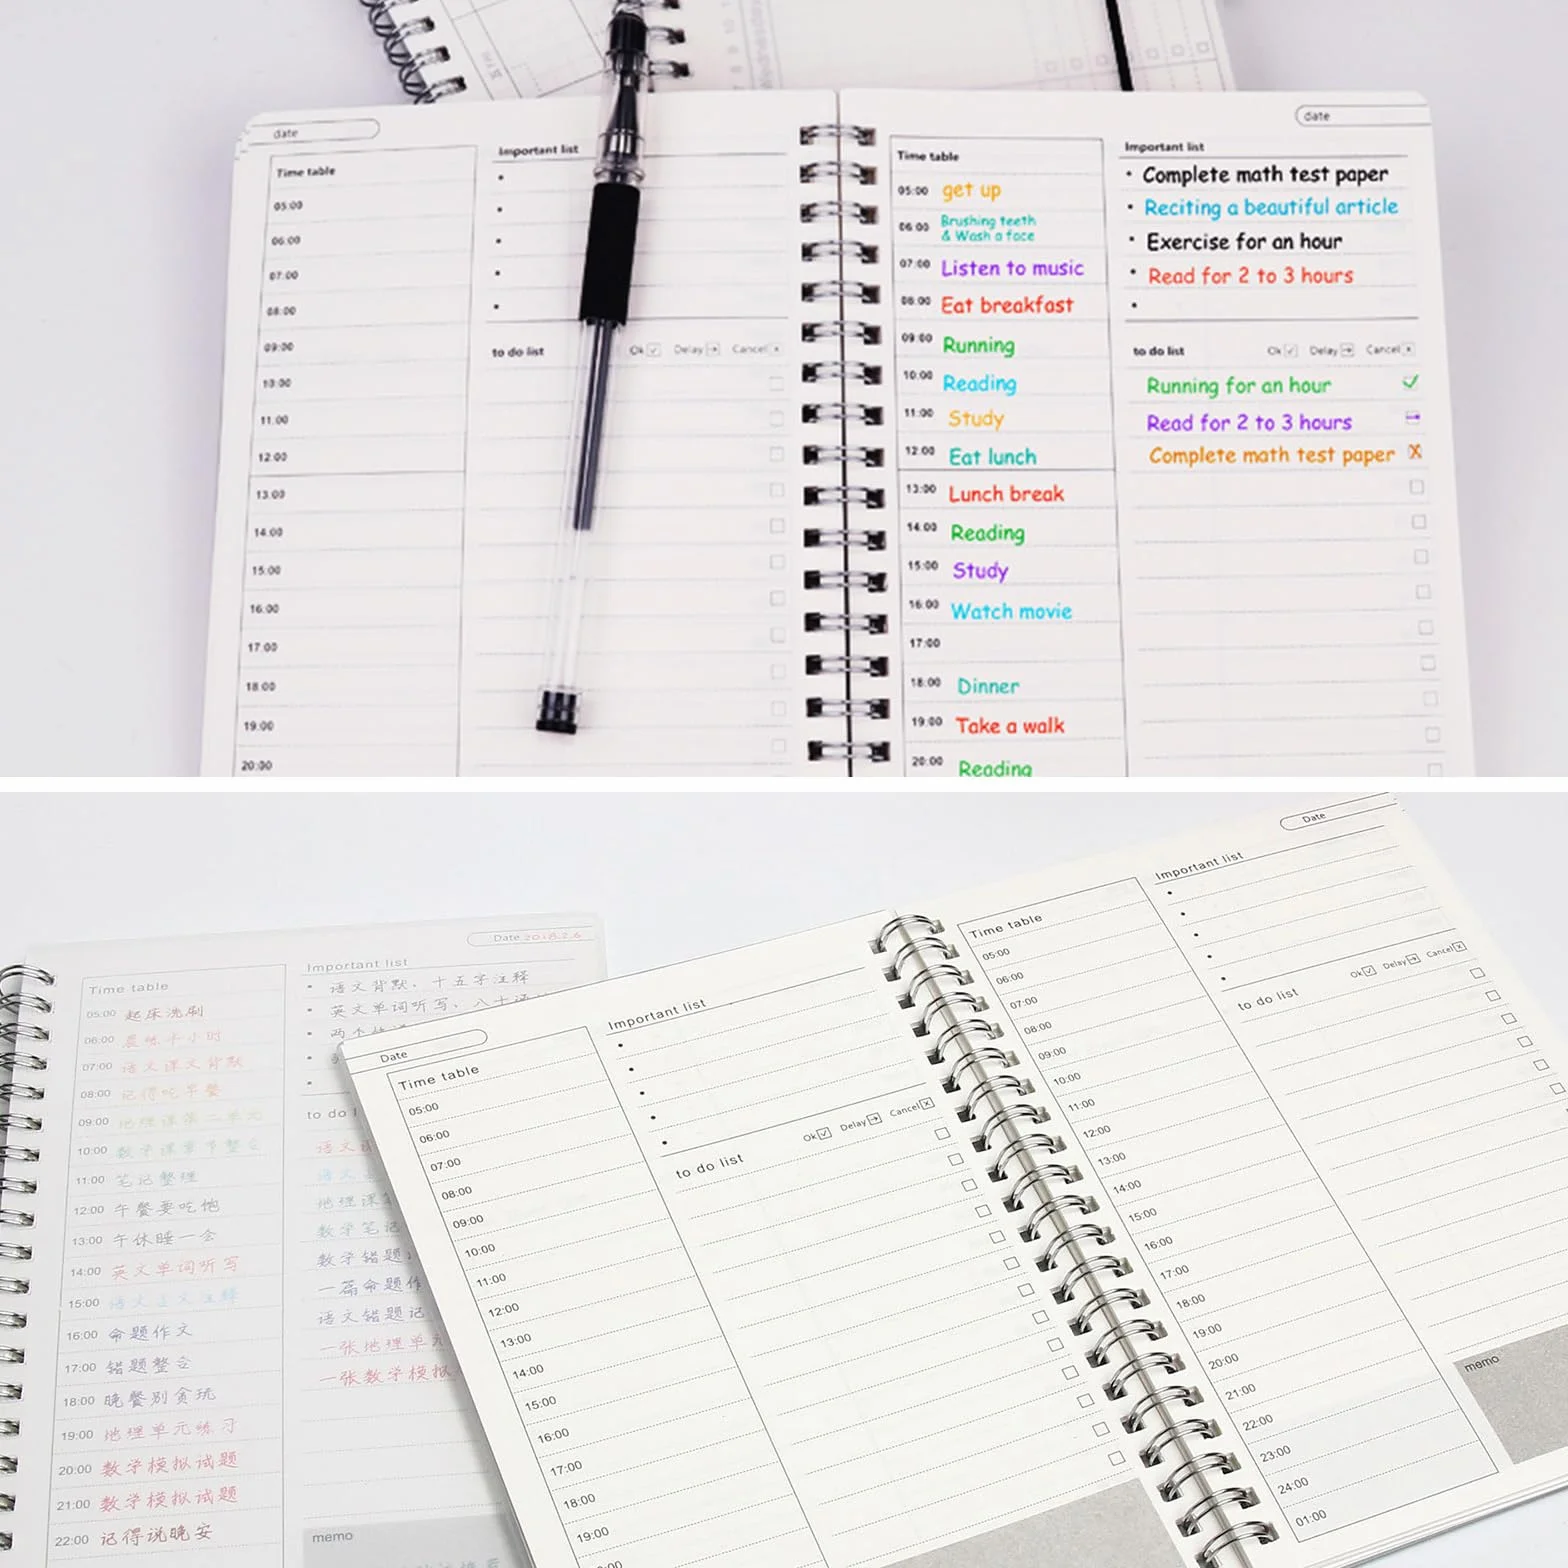 date
Time table
05:00
06:00
07:00
08:00
09:00
10:00
11:00
12:00
13:00
14:00
15:00
16:00
17:00
18:00
19:00
20:00
Important list
to do list
Ok Delay Cancel
date
Time table
05:00 get up
06:00 Brushing teeth
& Wash a face
07:00 Listen to music
08:00 Eat breakfast
09:00 Running
10:00 Reading
11:00 Study
12:00 Eat lunch
13:00 Lunch break
14:00 Reading
15:00 Study
16:00 Watch movie
17:00
18:00 Dinner
19:00 Take a walk
20:00 Reading
Important list
• Complete math test paper
• Reciting a beautiful article
• Exercise for an hour
• Read for 2 to 3 hours
to do list
Ok Delay Cancel
Running for an hour
Read for 2 to 3 hours
Complete math test paper
Date 2018.2.6
Time table
05:00 起床洗刷
06:00 晨练半小时
07:00 语文课文背默
08:00 记得吃早餐
09:00 地理课第二单元
10:00 数学课章节整合
11:00 笔记整理
12:00 午餐要吃饱
13:00 午休睡一会
14:00 英文单词听写
15:00 语文注释
16:00 命题作文
17:00 错题整合
18:00 晚餐别贪玩
19:00 地理单元练习
20:00 数学模拟试题
21:00 数学模拟试题
22:00 记得说晚安
Important list
• 语文背默、十五字注释
• 英文单词听写、八十
• 两个
to do
语文
语文
地理课
数学笔记
数学错题
一篇命题作
语文错题记
一张地理单元
一张数学模拟
memo
Date
Time table
05:00
06:00
07:00
08:00
09:00
10:00
11:00
12:00
13:00
14:00
15:00
16:00
17:00
18:00
19:00
Important list
Ok Delay Cancel
to do list
Date
Time table
05:00
06:00
07:00
08:00
09:00
10:00
11:00
12:00
13:00
14:00
15:00
16:00
17:00
18:00
19:00
20:00
21:00
22:00
23:00
24:00
01:00
Important list
Ok Delay Cancel
to do list
memo